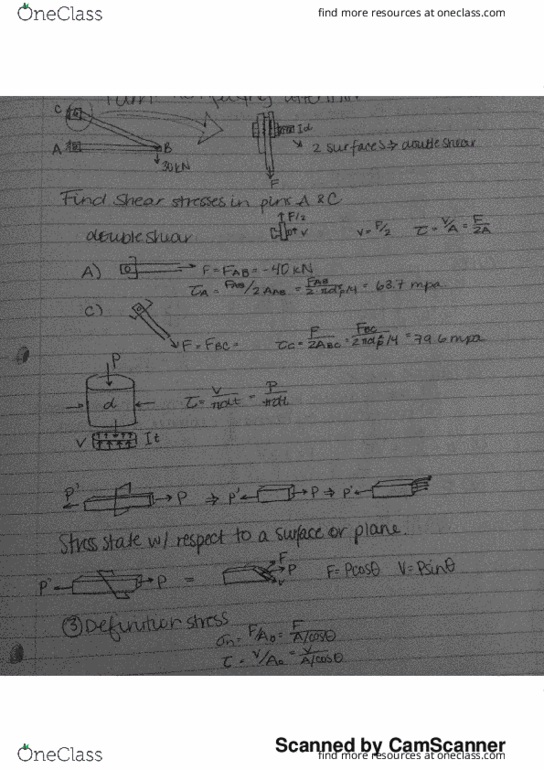 OneClass
find more resources at oneclass.com
C
Id
A
B
30KN
2 surfaces → double shear
F
Find Shear stresses in pins A & C
F/2
C
V
double shear
V = P/2 τ = V/A = F/2A
A) F = FAB = -40 KN
τA = FAB/2AAB = FAB/2πd²/4 = 63.7 mpa
C) F = FBC =
τC = F/2ABC = FBC/2πd²/4 = 79.6 mpa
P
d
τ = V/πdt = P/πdt
V It
P' P ⇒ P' P ⇒ P'
Stress state w/ respect to a surface or plane.
P' P = F P V F = Pcosθ V = Psinθ
③ Definition stress
σn = F/Aθ = F/A/cosθ
τ = V/Aθ = V/A/cosθ
Scanned by CamScanner
OneClass
find more resources at oneclass.com